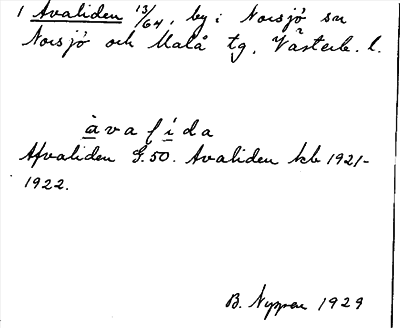 1 Avaliden 13/64, by i Norsjö sn
Norsjö och Malå tg, Västerb. l.
àva lída
Afvaliden G.50. Avaliden kb 1921-
1922.
B. Nyppen 1929